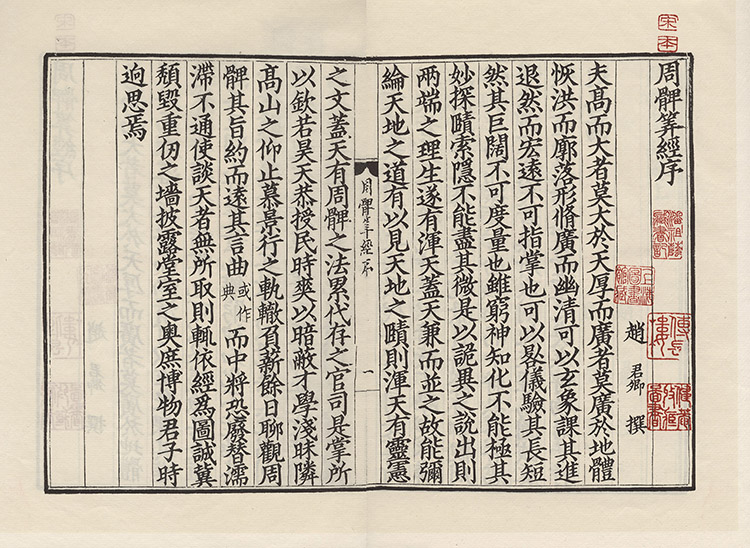 宋本
周髀筭經序
趙君卿撰
上海圖書館藏
夫髙而大者莫大於天厚而廣者莫廣於地體
恢洪而廓落形脩廣而幽清可以玄象課其進
退然而宏遠不可指掌也可以晷儀驗其長短
然其巨闊不可度量也雖窮神知化不能極其
妙探賾索隱不能盡其微是以詭異之說出則
兩端之理生遂有渾天蓋天兼而並之故能彌
綸天地之道有以見天地之賾則渾天有靈憲
周髀筭經序 一
之文蓋天有周髀之法累代存之官司是掌所
以欽若昊天恭授民時爽以暗蔽才學淺昧隣
髙山之仰止慕景行之軌轍負薪餘日聊觀周
髀其旨約而遠其言曲或作典而中將恐廢替濡
滯不通使談天者無所取則輒依經爲圖誠冀
頹毀重仞之墻披露堂室之奧庶博物君子時
逈思焉